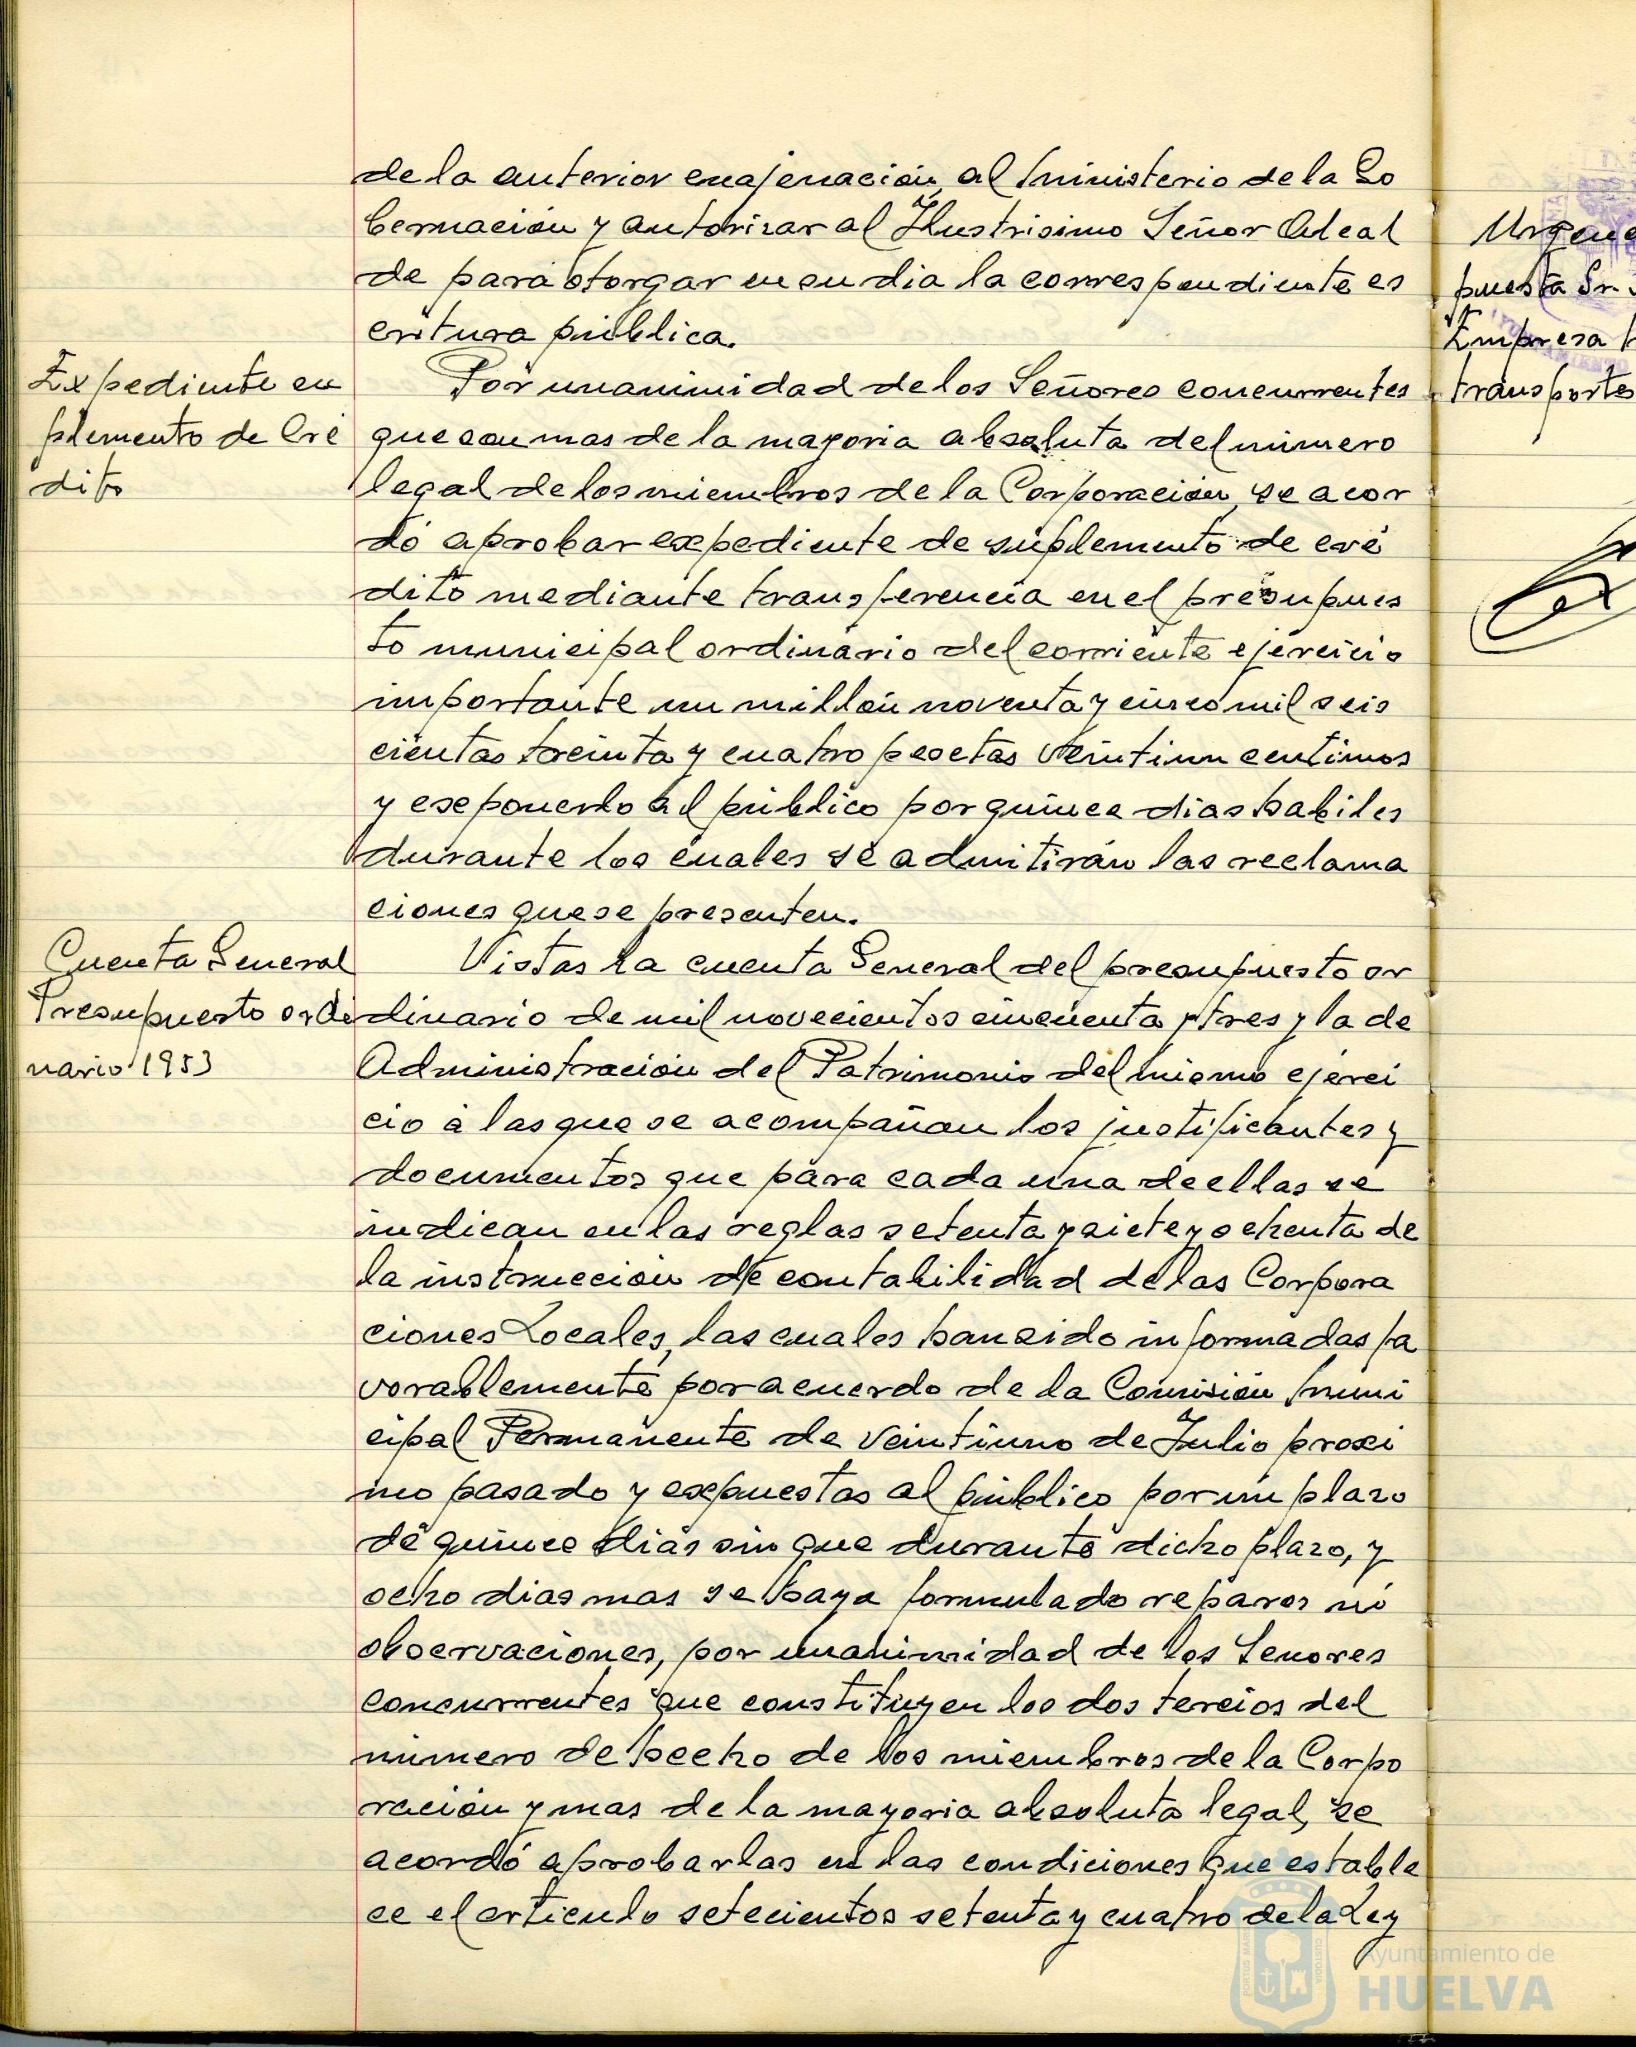 de la anterior enajenación, al Ministerio de la Go
bernación y autorizar al Ilustrisimo Señor Alcal
de para otorgar en su dia la correspondiente es
critura pública.
Expediente su
plemento de Cré
dito
Por unanimidad de los Señores concurrentes
que son mas de la mayoria absoluta del número
legal de los miembros de la Corporación, se acor
dó aprobar expediente de suplemento de cré
dito mediante transferencia en el presupues
to municipal ordinario del corriente ejercicio
importante un millón noventa y cinco mil seis
cientas treinta y cuatro pesetas veintiun centimos
y exponerlo al público por quince dias habiles
durante los cuales se admitirán las reclama
ciones que se presenten.
Cuenta General
Presupuesto ordi
nario 1953
Vistas la cuenta General del presupuesto or
dinario de mil novecientos cincuenta y tres y la de
Administración del Patrimonio del mismo ejerci
cio a las que se acompañan los justificantes y
documentos que para cada una de ellas se
indican en las reglas setenta y siete y ochenta de
la instrucción de contabilidad de las Corpora
ciones Locales, las cuales han sido informadas fa
vorablemente por acuerdo de la Comisión Muni
cipal Permanente de veintiuno de Julio proxi
mo pasado y expuestas al público por un plazo
de quince dias sin que durante dicho plazo, y
ocho dias mas se haya formulado reparos ni
observaciones, por unanimidad de los Senores
concurrentes que constituyen los dos tercios del
número de hecho de los miembros de la Corpo
ración y mas de la mayoria absoluta legal, se
acordó aprobarlas en las condiciones que estable
ce el articulo setecientos setenta y cuatro de la Ley
puesta Sr.
Empresa
transportes
Ayuntamiento de
HUELVA